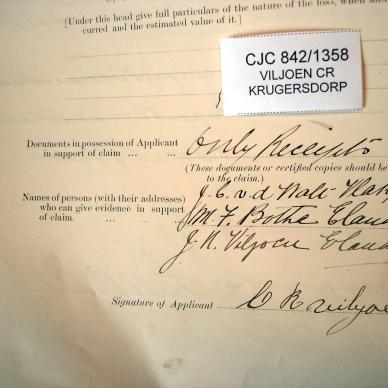 [Under this head give full particulars of the nature of the loss, when and
curred and the estimated value of it.]
CJC 842/1358
VILJOEN CR
KRUGERSDORP
Documents in possession of Applicant
in support of claim ... ...
Only Receipts
(These documents or certified copies should
to the claim.)
Names of persons (with their addresses)
who can give evidence in support
of claim. ... ... ...
J. C. v. d. Walt
J. M. F. Botha
J. N. Viljoen
Signature of Applicant
C R Viljoe